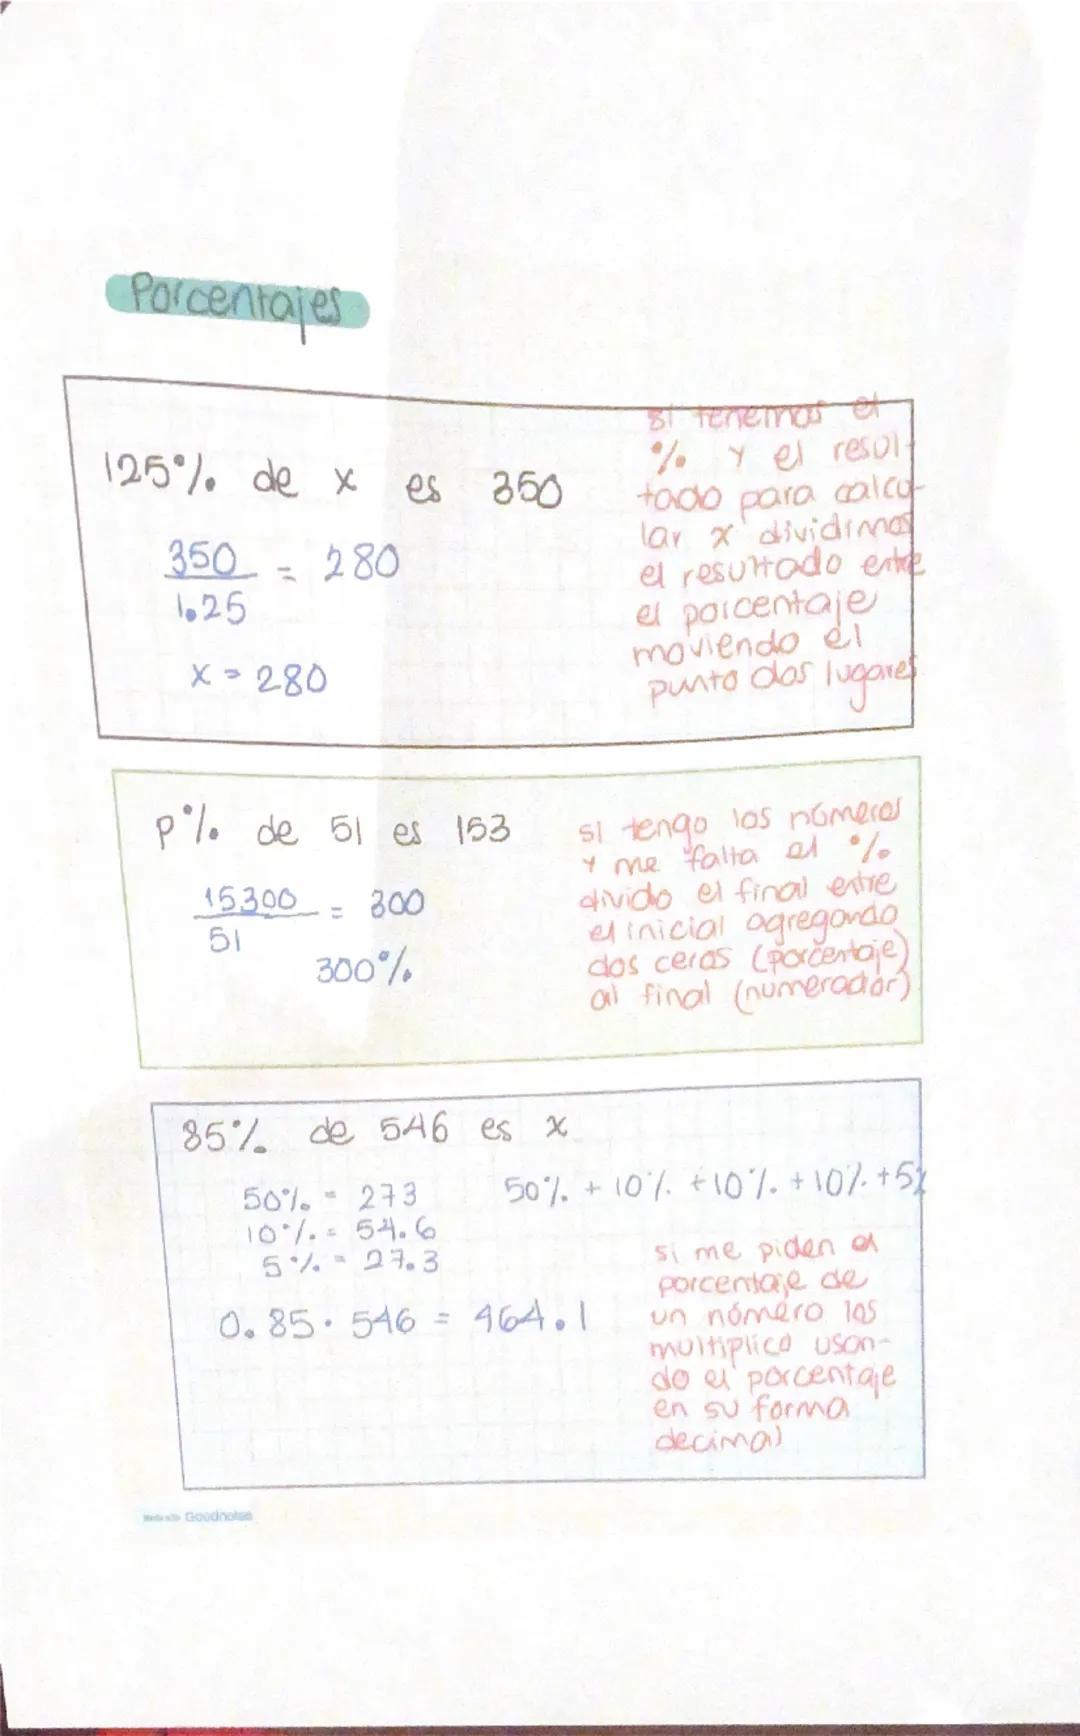 Porcentajes
125% de x es 350
350 = 280
1.25
x = 280
si tenemos el
% y el resul-
tado para calcu-
lar x dividimos
el resultado entre
el porcentaje
moviendo el
punto dos lugares.
P% de 51 es 153
15300 = 300
51
300%
si tengo los números
y me falta el %
divido el final entre
el inicial agregando
dos ceros (porcentaje)
al final (numerador)
85% de 546 es x
50% = 273
10% = 54.6
5% = 27.3
50% + 10% + 10% + 10% + 5%
0.85 · 546 = 464.1
si me piden el
porcentaje de
un número los
multiplico usan-
do el porcentaje
en su forma
decimal
Made with Goodnotes